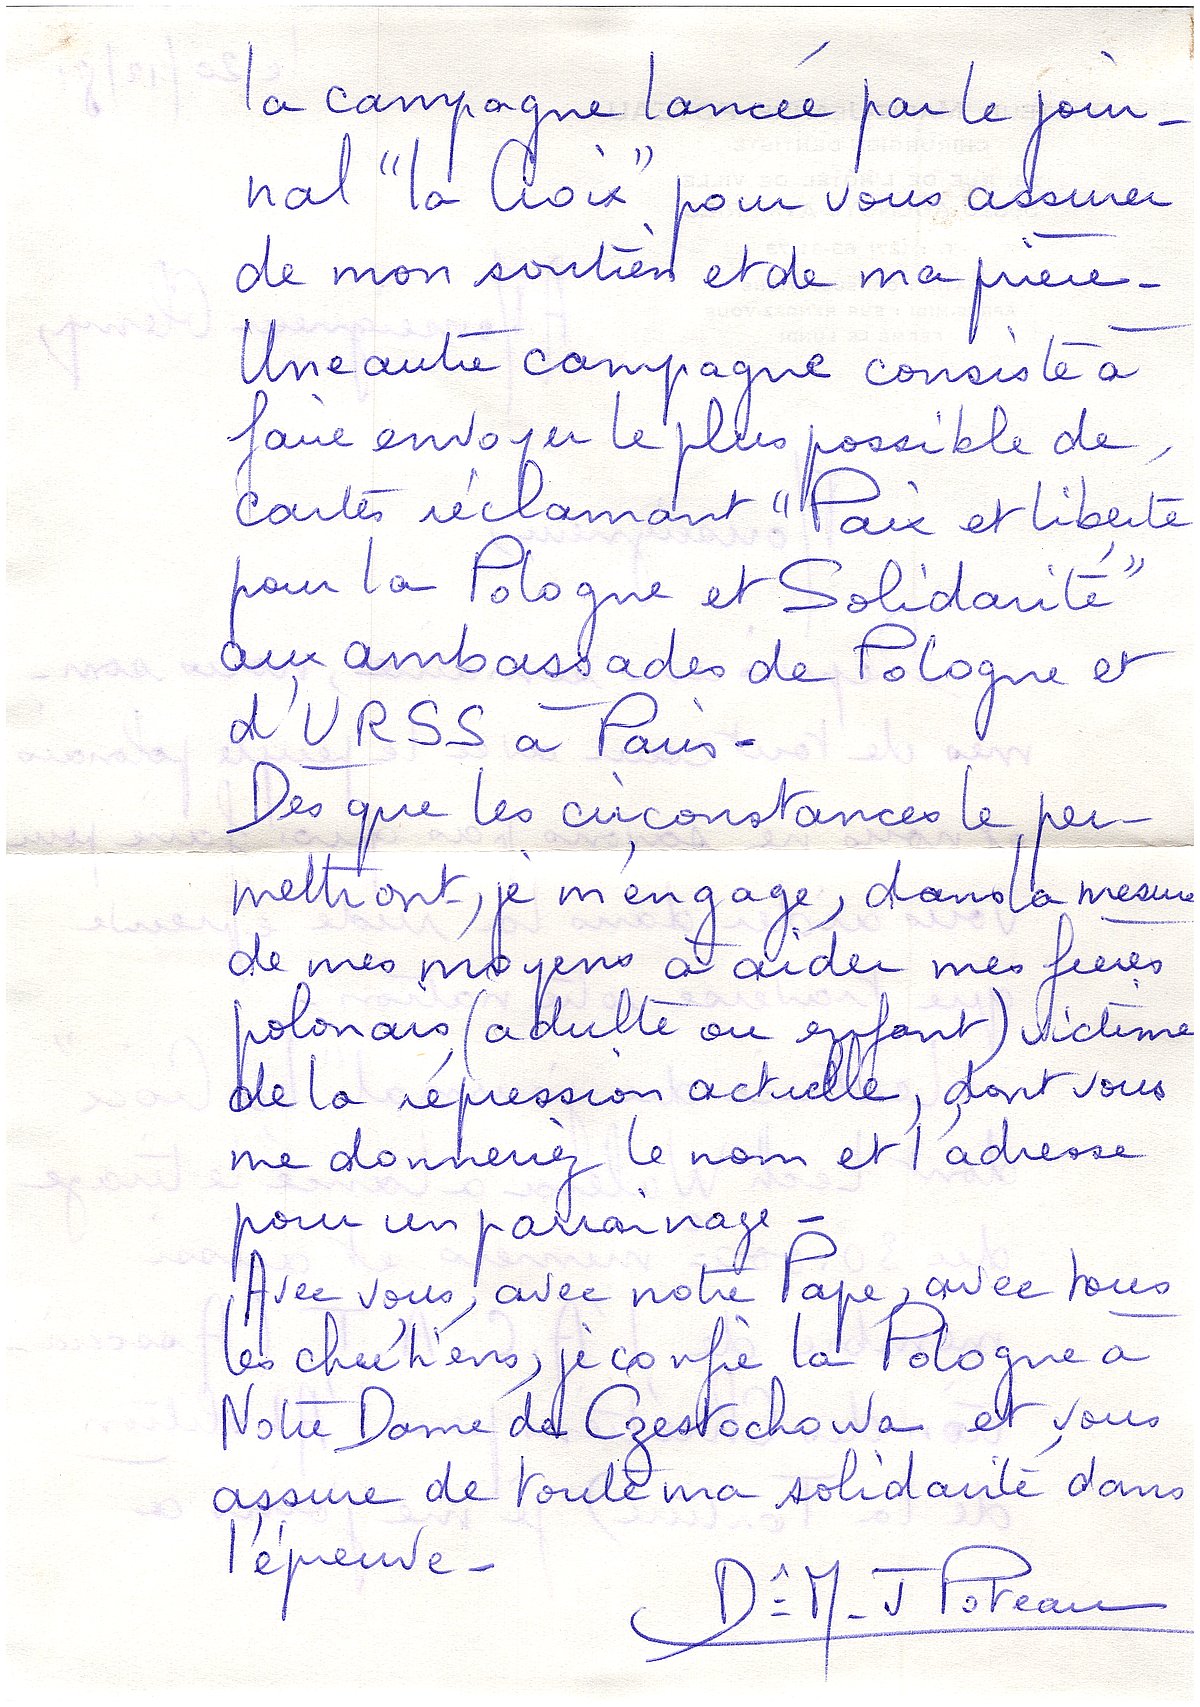 la campagne lancée par le jour-
nal "la Croix" pour vous assurer
de mon soutien et de ma prière -
Une autre campagne consiste à
faire envoyer le plus possible de
cartes réclamant "Paix et liberté
pour la Pologne et Solidarité"
aux ambassades de Pologne et
d'URSS à Paris -
Dès que les circonstances le per-
mettront, je m'engage, dans la mesure
de mes moyens à aider mes frères
polonais (adulte ou enfant) victime
de la répression actuelle, dont vous
me donneriez le nom et l'adresse
pour un parrainage -
Avec vous, avec notre Pape, avec tous
les chrétiens, je confie la Pologne à
Notre Dame de Czestochowa et vous
assure de toute ma solidarité dans
l'épreuve -
M-J Poteau